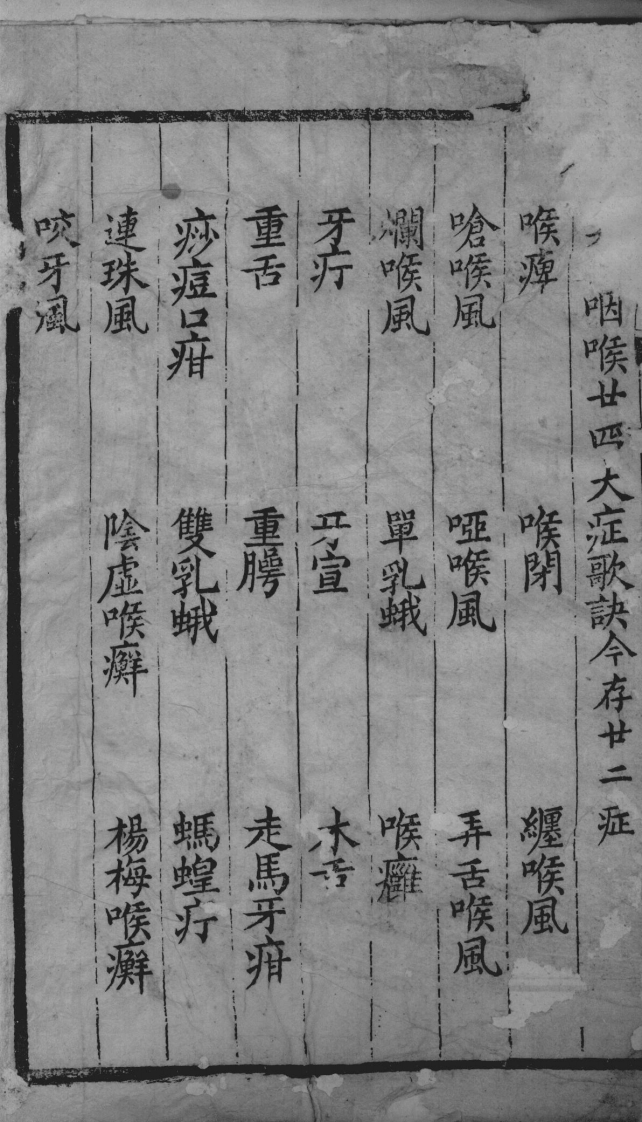 咽喉廿四大症歌訣今存廿二症
喉痺 喉閉 纏喉風
嗆喉風 啞喉風 弄舌喉風
爛喉風 單乳蛾 喉癰
牙疔 牙宣 木舌
重舌 重腭 走馬牙疳
痧痘口疳 雙乳蛾 螞蝗疔
連珠風 陰虛喉癬 楊梅喉癬
咬牙風